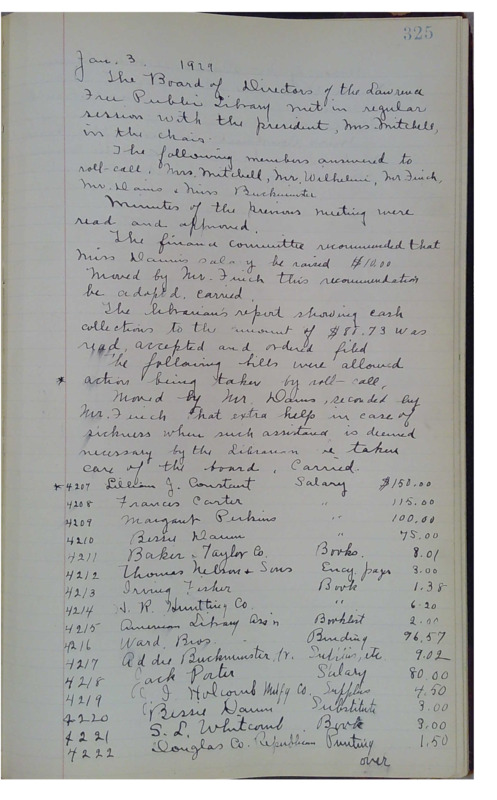 325
Jan. 3. 1929
The Board of Directors of the Lawrence
Free Public Library met in regular
session with the president, Mrs. Mitchell,
in the chair.
The following members answered to
roll-call. Mrs. Mitchell, Mr. Wilhelmi, Mr Finch,
Mr. & Miss Buckmister
Minutes of the previous meeting were
read and approved.
The finance committee recommended that
Miss salary be raised $10.00
Moved by Mr. Finch this recommendation
be adopted. carried.
The librarian's report showing cash
collections to the amount of $87.73 was
read, accepted and ordered filed
The following bills were allowed
* action being taken by roll-call,
Moved by Mr. , seconded by
Mr. Finch that extra help in case of
sickness when such assistance is deemed
necessary by the Librarian be taken
care of by the board. Carried.
* 4207 Lillian J. Constant Salary $150.00
4208 Frances Carter " 115.00
4209 Margaret Perkins " 100.00
4210 Bessie Daum " 75.00
4211 Baker & Taylor Co. Books. 8.01
4212 Thomas Nelson & Sons Ency. pages 3.00
4213 Irving Fisher Book 1.38
4214 H. R. Huntting Co. " 6.20
4215 American Library Ass'n Booklist 2.00
4216 Ward Bros. Binding 96.57
4217 Addie Buckmister, tr. Supplies, etc. 9.02
4218 Jack Porter Salary 80.00
4219 J. Holcomb Mnfg Co. Supplies 4.50
4220 Bessie Daum Substitute 3.00
4221 S. L. Whitcomb Book 3.00
4222 Douglas Co. Republican Printing 1.50
over